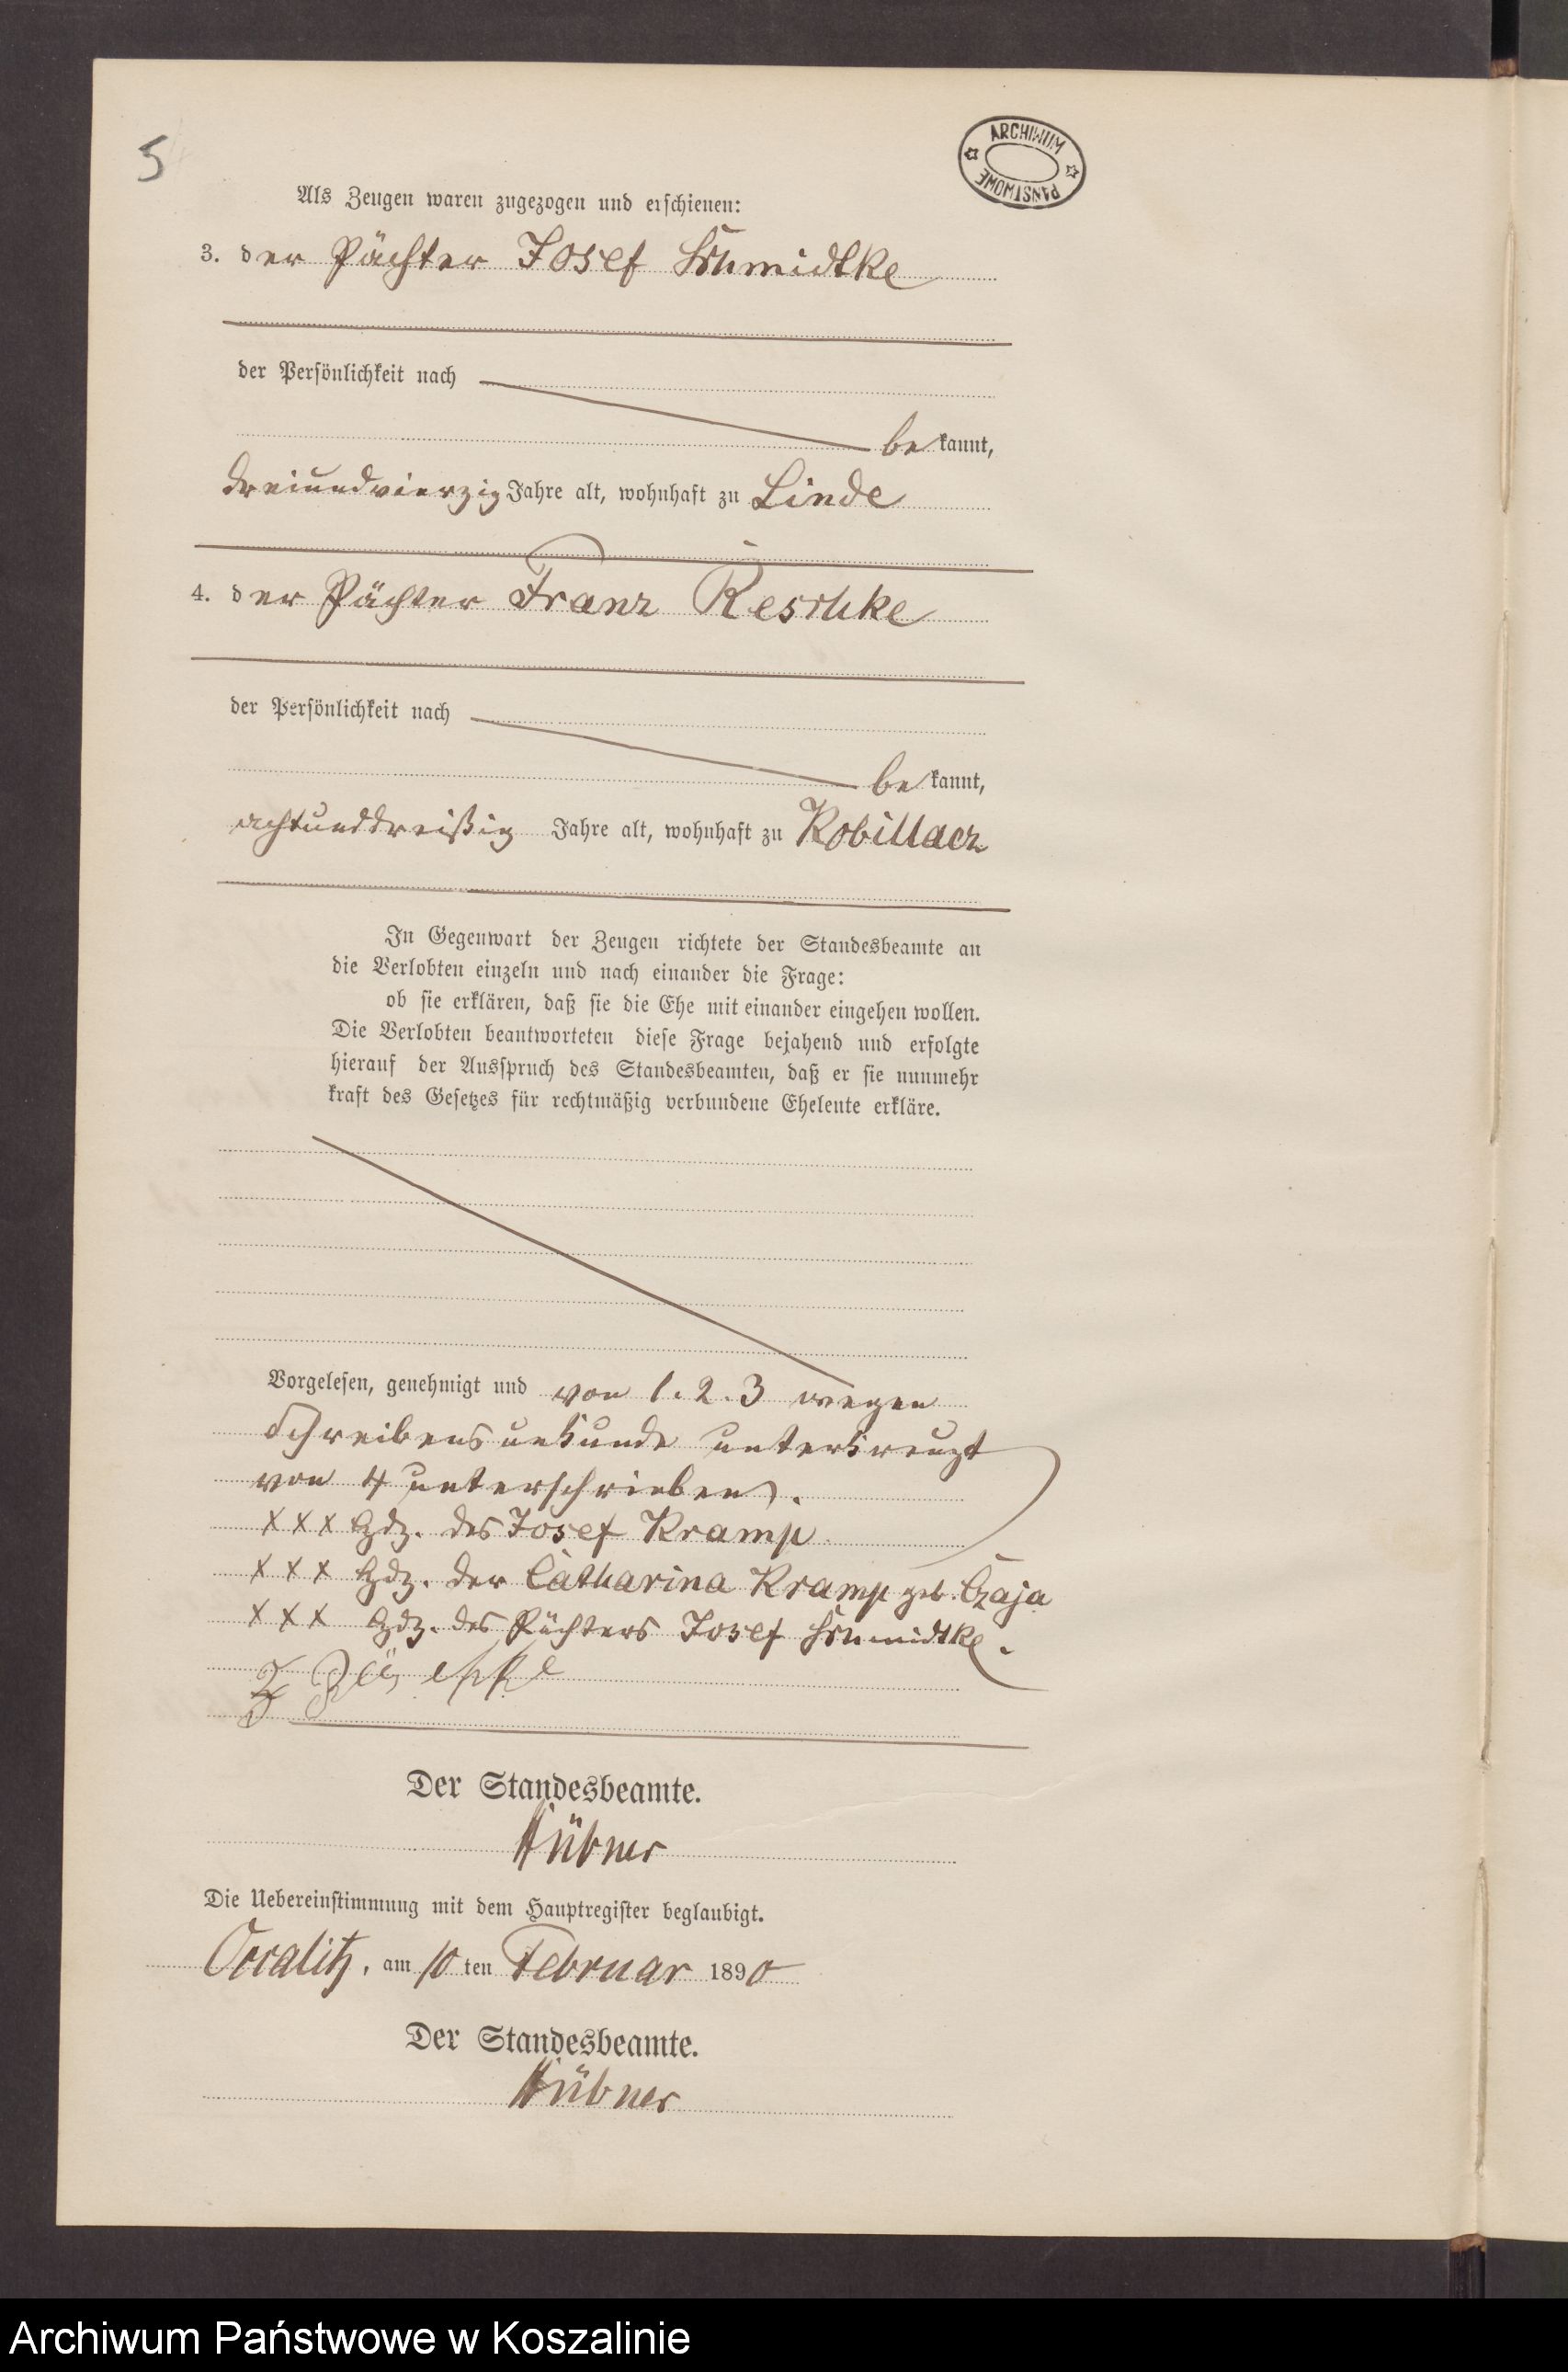 5
ARCHIWUM PAŃSTWOWE
Als Zeugen waren zugezogen und erschienen:
3. der Pächter Josef Schmidtke
der Persönlichkeit nach
be kannt,
dreiundvierzig Jahre alt, wohnhaft zu Linde
4. der Pächter Franz Reschke
der Persönlichkeit nach
be kannt,
achtunddreißig Jahre alt, wohnhaft zu Robillacz
In Gegenwart der Zeugen richtete der Standesbeamte an
die Verlobten einzeln und nach einander die Frage:
ob sie erklären, daß sie die Ehe mit einander eingehen wollen.
Die Verlobten beantworteten diese Frage bejahend und erfolgte
hierauf der Ausspruch des Standesbeamten, daß er sie nunmehr
kraft des Gesetzes für rechtmäßig verbundene Eheleute erkläre.
Vorgelesen, genehmigt und von 1. 2. 3 wegen
Schreibensunkunde unterkreuzt
von 4 unterschrieben.
XXX Hdz. des Josef Kramp
XXX Hdz. der Catharina Kramp geb. Czaja
XXX Hdz. des Pächters Josef Schmidtke.
Der Standesbeamte.
Hübner
Die Uebereinstimmung mit dem Hauptregister beglaubigt.
Occalitz, am 10 ten Februar 1890
Der Standesbeamte.
Hübner
Archiwum Państwowe w Koszalinie